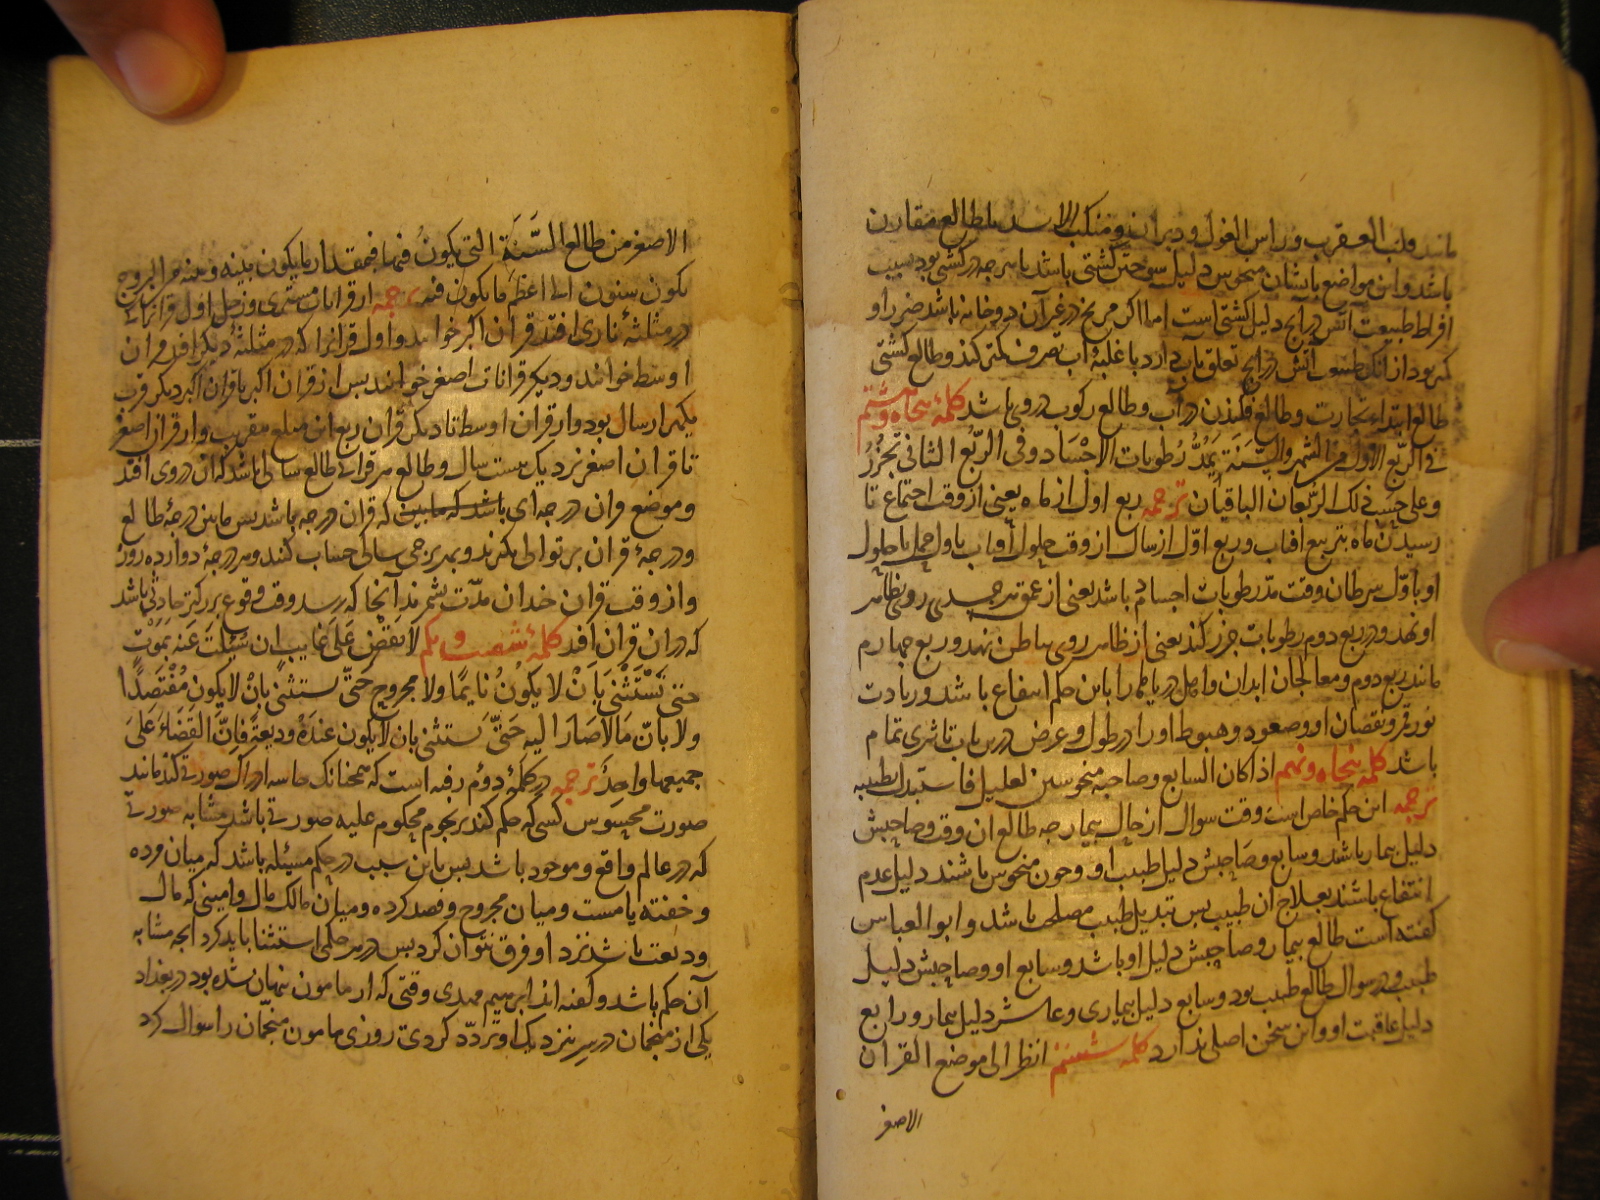 مانند قلب العقرب وراس الغول ودبران ومنکب الاسد بطالع مقارن
باشد واین مواضع بایشان منحوس دلیل سوختن کشتی باشد یا هرچه در کشتی بود بسبب
افراط طبیعت آتش در برج دلیل کشتی است اما اگر مریخ در غیر آن دو خانه باشد ضرر او
کمتر بود از آنک طبیعت آتش در برج تعلق بآب دارد با غلبهٔ آب تصرف کمتر کند وطالع کشتی
طالع ابتداء تجارت وطالع فکندن در آب وطالع رکوب در وی باشد کلمهٔ پنجاه وهشتم
فی الربع الاول من الشهر والسنة یمدّ رطوبات الاجساد وفی الربع الثانی تجزر
وعلی حسب ذلک الربعان الباقیان ترجمه ربع اول از ماه یعنی از وقت اجتماع تا
رسیدن ماه بتربیع آفتاب وربع اوّل از سال از وقت حلول آفتاب باول حمل تا حلول
او باوّل سرطان وقت مدّ رطوبات اجسام باشد یعنی از عمق هر جسدی روی بظاهر
او نهد ودر ربع دوم رطوبات جزر کند یعنی از ظاهر روی بباطن نهد وربع چهارم
مانند ربع دوم ومعالجان ابدان واهل دریاها را باین حکم انتفاع باشد وزیادت
نور قمر ونقصان او وصعود وهبوط او را در طول وعرض درین باب تاثیری تمام
باشد کلمه پنجاه ونهم اذا کان السابع وصاحبه منحوسین لعلیل فاستبدل بطبیبه
ترجمه این حکم خاص است وقت سوال از حال بیمار چه طالع آن وقت وصاحبش
دلیل بیمار باشد وسابع وصاحبش دلیل طبیب او وچون منحوس باشند دلیل عدم
انتفاع باشند بعلاج آن طبیب پس تبدیل طبیب مصلحت باشد وابو العباس
گفته است طالع بیمار وصاحبش دلیل او باشد وسابع او وصاحبش دلیل
طبیب ودر سوال طالع طبیب بود وسابع دلیل بیماری وعاشر دلیل بیمار ورابع
دلیل عاقبت او واین سخن اصلی ندارد کلمه شستم انظر الی موضع القران
الاصغر
الاصغر من طالع السَّنَة التی یکون فیها فبمقدار ما یکون بینه وبینه من البروج
یکون سنون الی اعظم ما یکون فیه ترجمه از قرانات مشتری وزحل اول قرانها کی
در مثلثهٔ ناری افتد قران اکبر خوانند واول قرانرا که در مثلثهٔ دیگر افتد قران
اوسط خوانند ودیگر قرانات اصغر خوانند پس از قران اکبر با قران اکبر دیگر قرب
یکهزار سال بود واز قران اوسط تا دیگر قران ربع آن مبلغ بتقریب واز قران اصغر
تا قران اصغر نزدیک بیست سال وطالع هر قرانی طالع سالی باشد که آن در وی افتد
وموضع قران درجه‌ای باشد که مابین که قران در درجه باشد پس مابین درجهٔ طالع
ودرجهٔ قران بر توالی بگیرند وبهر برجی سالی حساب کنند وهر درجهٔ دوازده روز
واز وقت قران چندان مدّت بشمرند آنجا که رسد وقت وقوع بزرکتر حادثی باشد
که در آن قران افتد کلمهٔ شصت ویکم لا تقض علی غایب ان سئلت عنه بموت
حتی تستثنی بأن لا یکون نایمًا ولا مجروح حتّی تستثنی بانْ لا یکون مفتصدًا
ولا بانّ مالا صار الیه حتّی تستثنی بان لا یکون عنده ودیعة فانّ القضاء علی
جمیعها واحدٌ ترجمه در کلمهٔ دوّم رفته است که همچنانک حاسه ادراک صورتی کند مانند
صورت محسوس کسی که حکم کند بر نجوم محکوم علیه صورتی باشد مشابه صورتی
که در عالم واقع وموجود باشد پس باین سبب در حکم مسئله باشد که میان مرده
وخفته یا مست ومیان مجروح وفصد کرده ومیان مالک مال وامینی که مال
ودیعت باشد نزد او فرق نتوان کرد پس در هر حکمی استثنا باید کرد آنچه مشابه
آن حکم باشد وگفته اند ابرهیم مهدی وقتی که از مامون پنهان شده بود در بغداد
یکی از منجمان در سرّ نزدیک او تردّد کردی روزی مامون منجّمان را سوال کرد